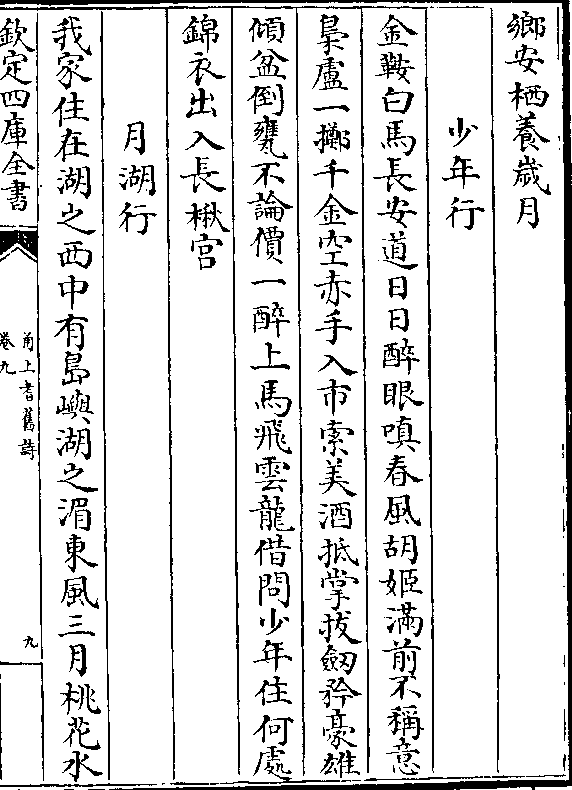 鄉安栖養歲月
少年行
金鞍白馬長安道日日醉眼嗔春風胡姬滿前不稱意
梟盧一擲千金空赤手入市索美酒抵掌拔劒矜豪雄
傾盆倒甕不論價一醉上馬飛雲龍借問少年住何處
錦衣出入長楸宫
月湖行
我家住在湖之西中有島嶼湖之湄東風三月桃花水
欽定四庫全書
甬上耆舊詩
卷九
九